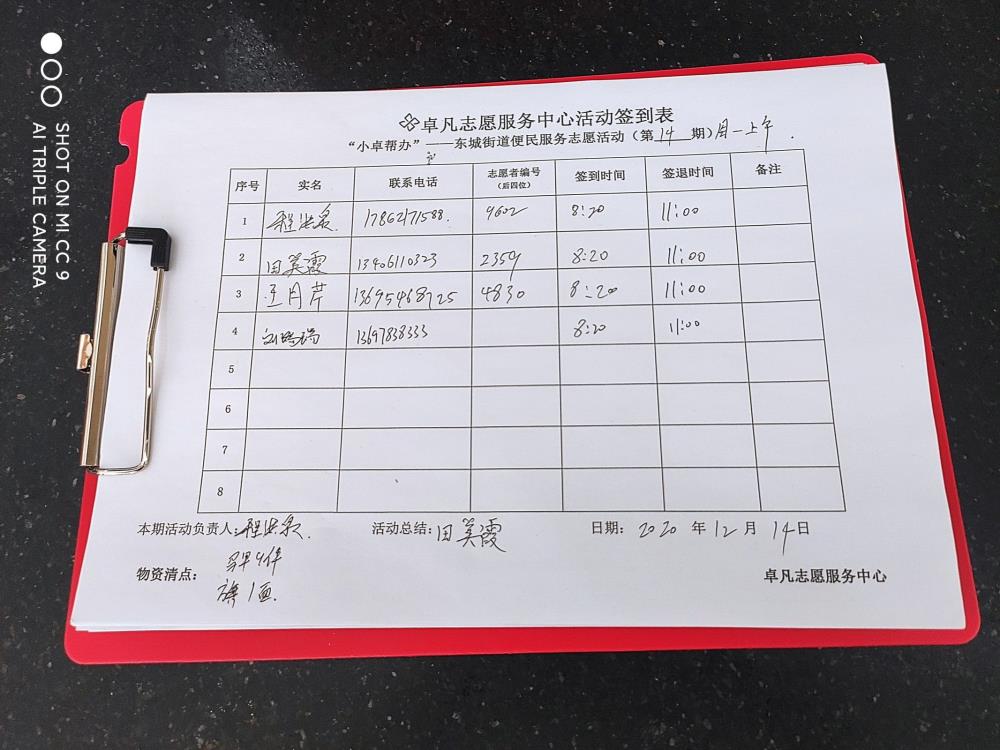 卓凡志愿服务中心活动签到表
“小卓帮办”——东城街道便民服务志愿活动（第14期）周一上午.
序号 实名 联系电话 志愿者编号（后四位） 签到时间 签退时间 备注
1 程洪泉. 17862171588. 9602 8:20 11:00
2 田美霞 13406110323 2359 8:20 11:00
3 王月芹 13695468725 4830 8:20 11:00
4 13697838333 8:20 11:00
5
6
7
8
本期活动负责人:程洪泉. 活动总结:田美霞 日期: 2020 年 12 月 14日
4件
物资清点: 旗1面. 卓凡志愿服务中心
SHOT ON MI CC 9
AI TRIPLE CAMERA